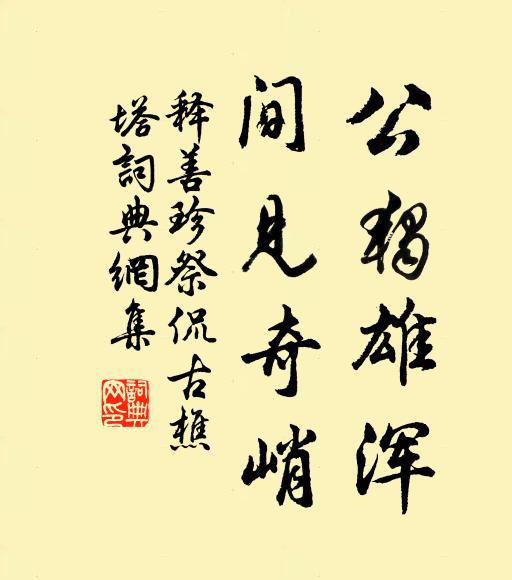 公独雄浑
间见奇峭
释善珍祭侃古樵
塔詞典網集
詞典网印